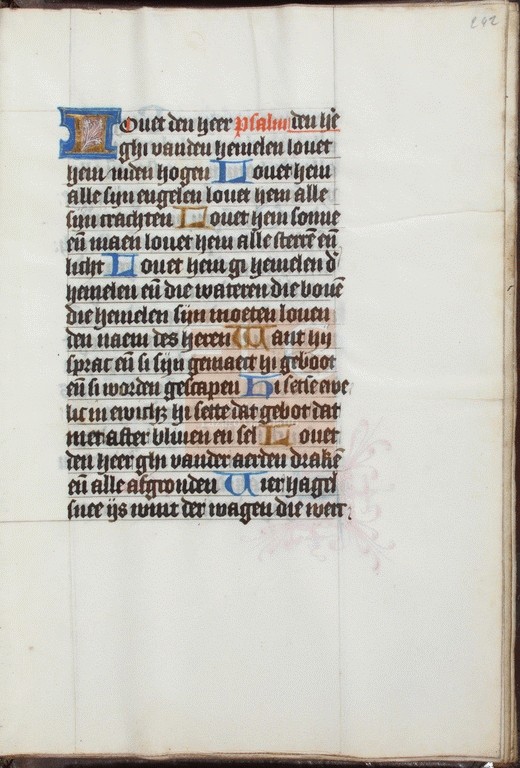 242
Louet den heer psalm den he
ghi vanden hemelen louet
hem inden hogen Louet hem
alle sijn engelen louet hem alle
sijn crachten Louet hem sonne
eñ maen louet hem alle sterrē eñ
licht Louet hem gi hemelen d'
hemelen eñ die wateren die bouē
die hemelen sijn moeten louen
den naem des heren Want hij
sprac eñ si sijn gemaect hi geboot
eñ si worden gescapen Hi setse ewe
lic in ewich; hi sette dat gebot dat
niet after bliuen en sel Louet
den heer ghi vander aerden drakē
eñ alle afgronden Vier hagel
snee ijs wint der wagen die wert